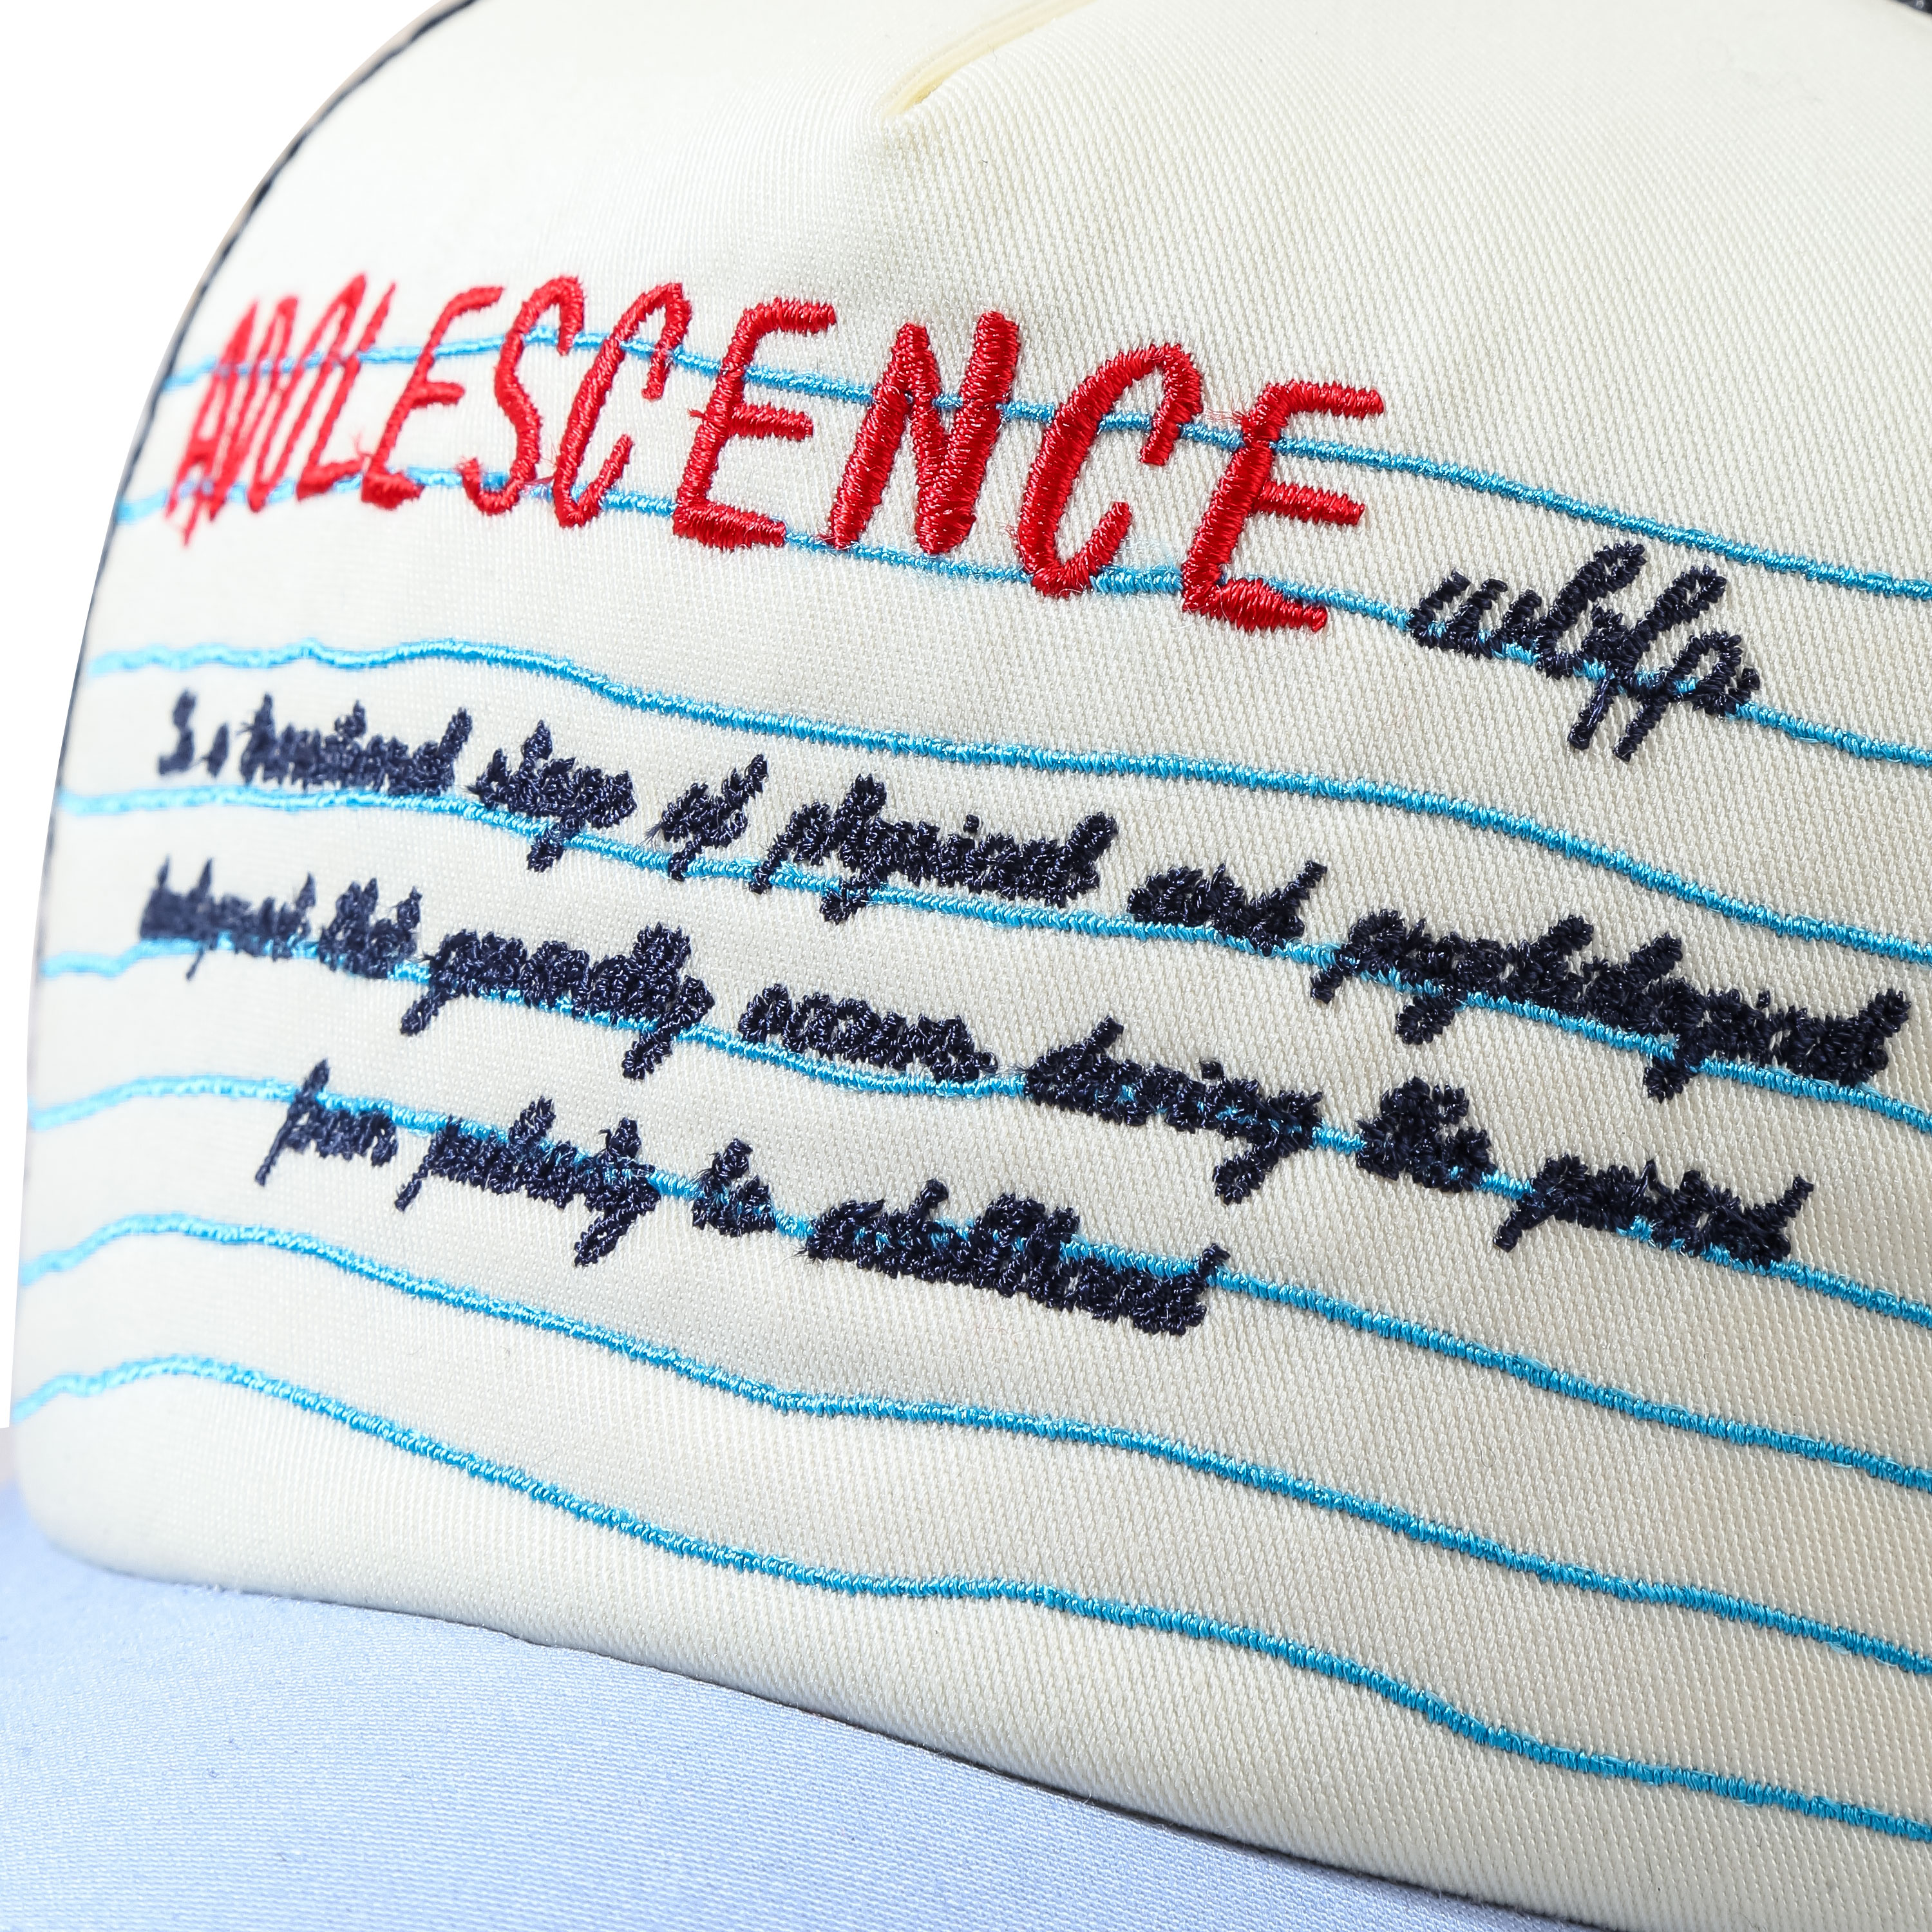 ADOLESCENCE wblfp
Is a transitional stage of physical and psychological
development that generally occurs during the period
from puberty to adulthood